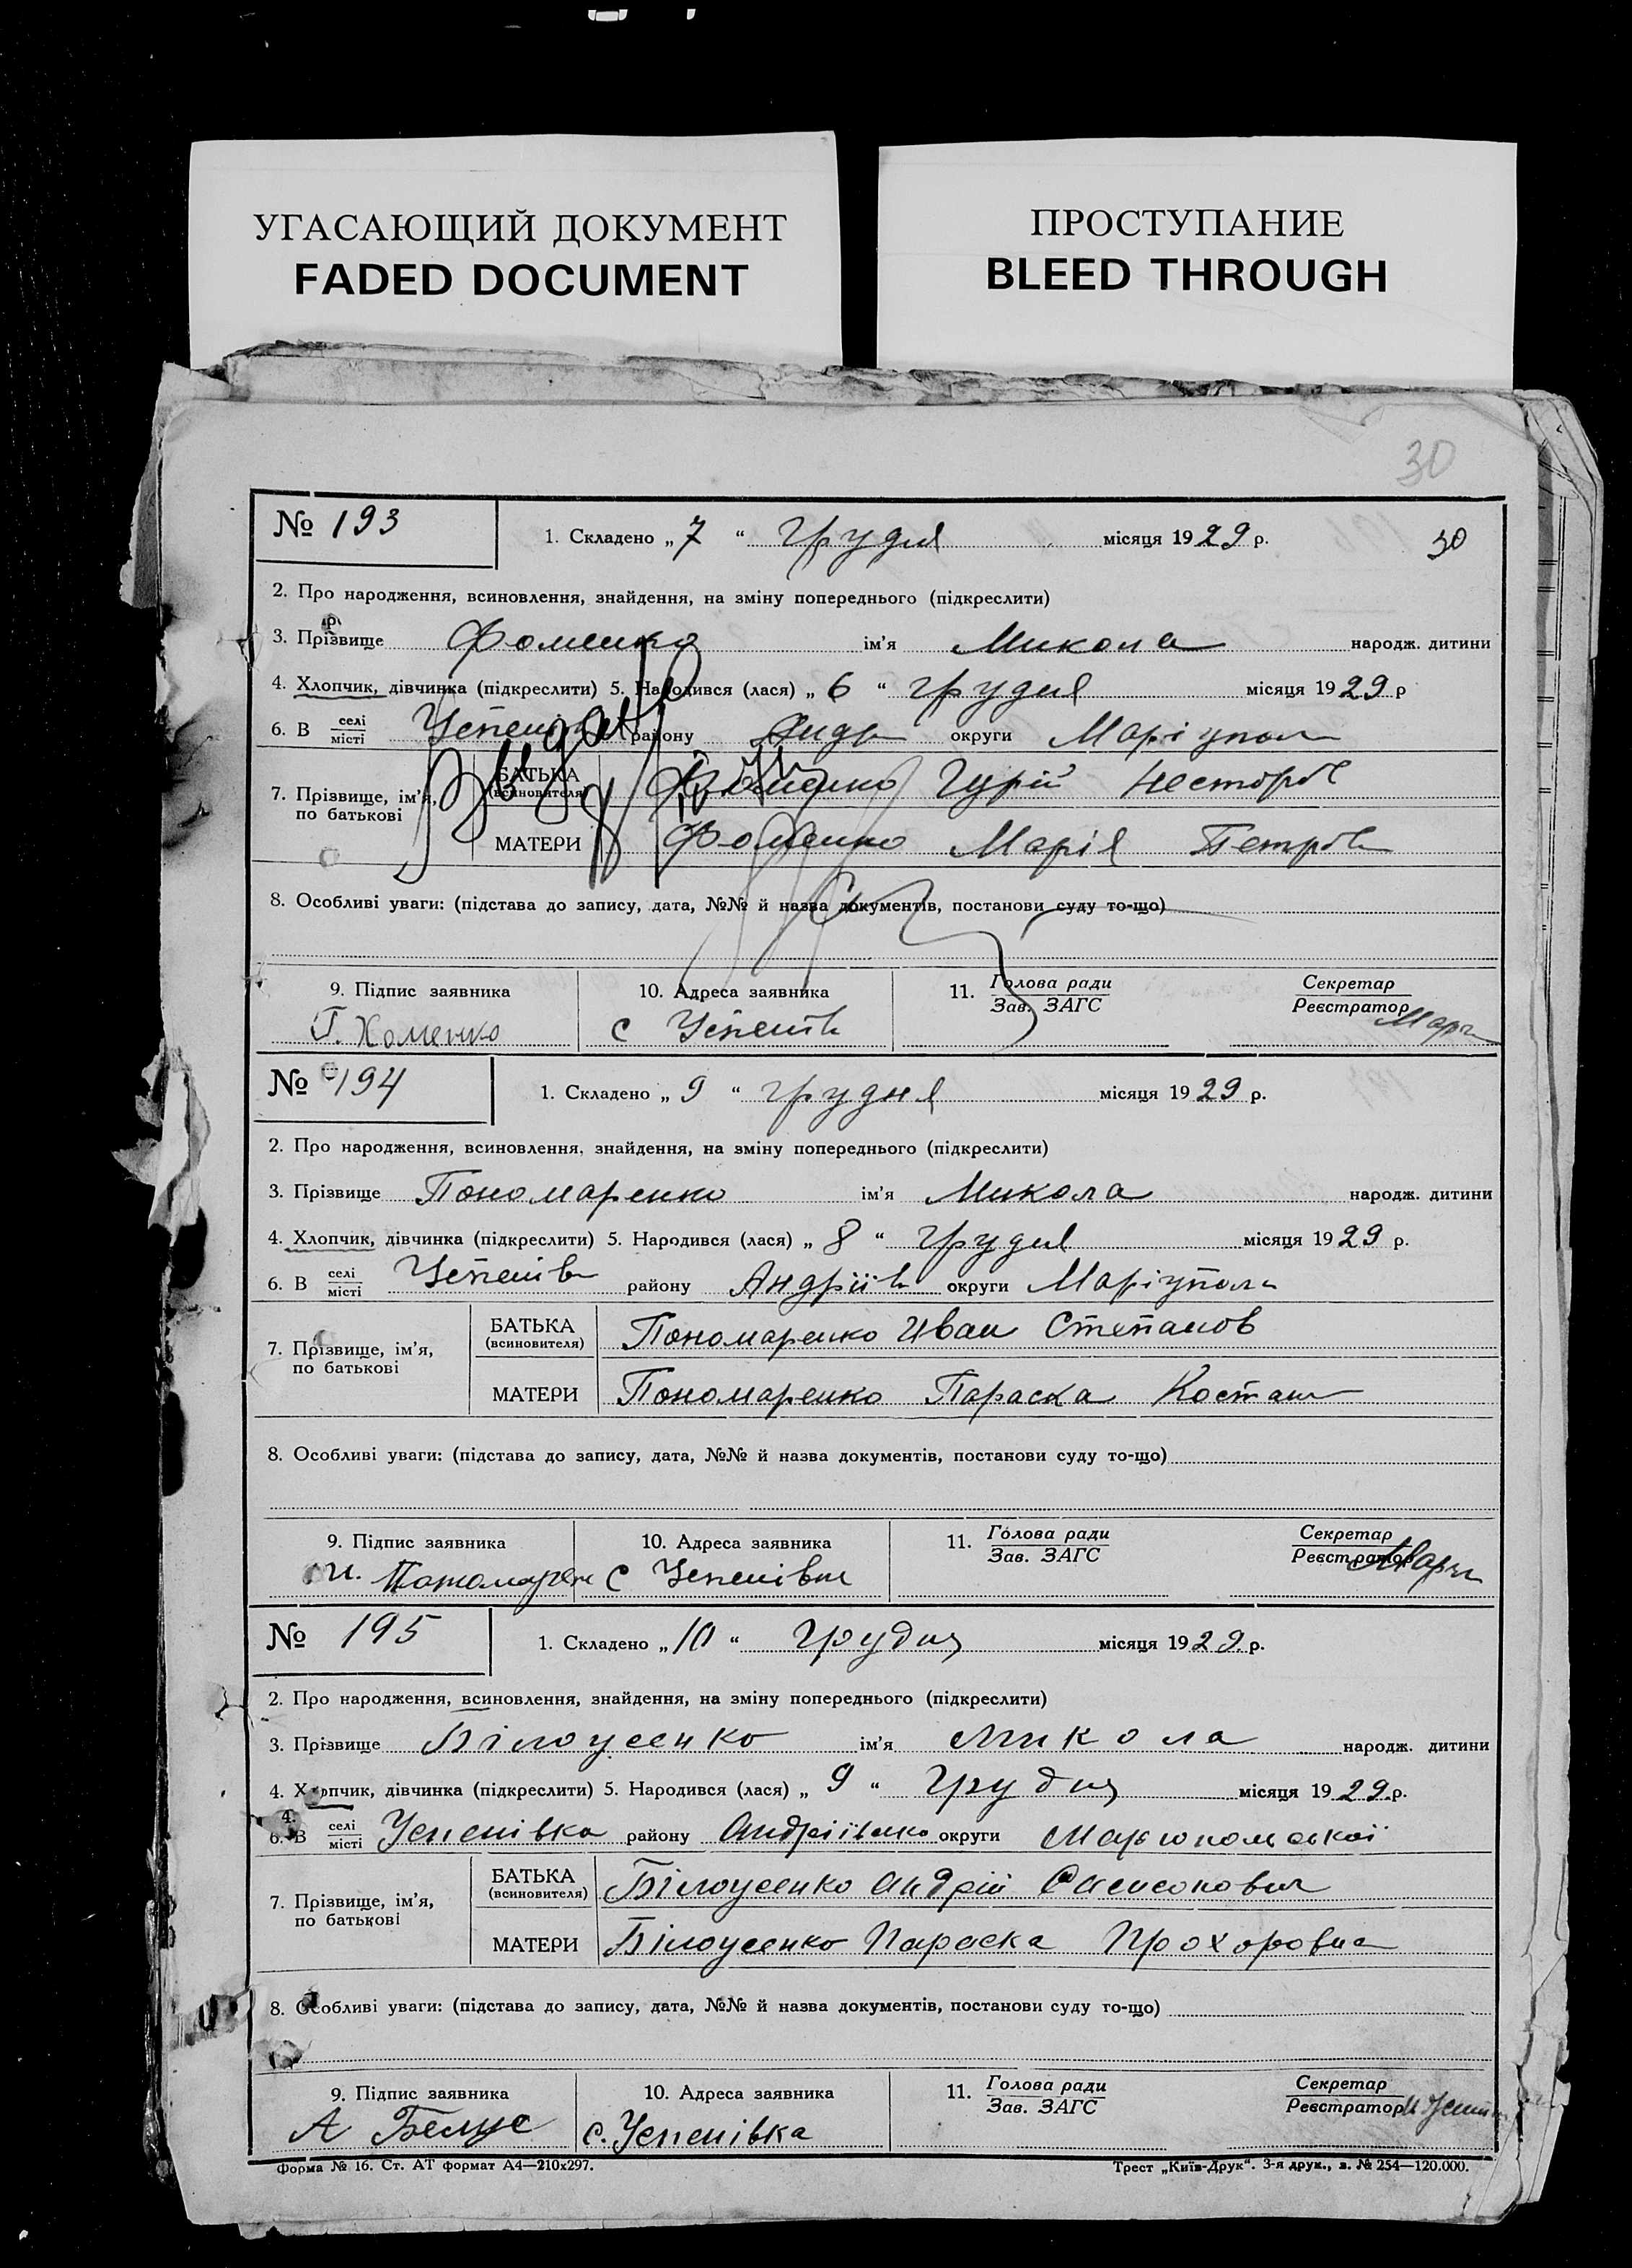 УГАСАЮЩИЙ ДОКУМЕНТ
FADED DOCUMENT
ПРОСТУПАНИЕ
BLEED THROUGH
30
№ 193
1. Складено „7“ грудня місяця 1929 р.
30
2. Про народження, всиновлення, знайдення, на зміну попереднього (підкреслити)
3. Прізвище Фоменко ім'я Микола народж. дитини
4. Хлопчик, дівчинка (підкреслити) 5. Народився (лася) „6“ грудня місяця 1929 р
6. В селі/місті Успенів району Андр округи Маріупол
7. Прізвище, ім'я, по батькові
БАТЬКА (всиновителя) Фоменко Гурій Несторов
МАТЕРИ Фоменко Марія Петров
8. Особливі уваги: (підстава до запису, дата, №№ й назва документів, постанови суду то-що)
9. Підпис заявника
10. Адреса заявника
11. Голова ради / Зав. ЗАГС
Секретар / Реєстратор
Г. Хоменко
с Успенів
№ 194
1. Складено „9“ грудня місяця 1929 р.
2. Про народження, всиновлення, знайдення, на зміну попереднього (підкреслити)
3. Прізвище Пономаренко ім'я Микола народж. дитини
4. Хлопчик, дівчинка (підкреслити) 5. Народився (лася) „8“ грудня місяця 1929 р.
6. В селі/місті Успенів району Андріїв округи Маріупол
7. Прізвище, ім'я, по батькові
БАТЬКА (всиновителя) Пономаренко Иван Степанов
МАТЕРИ Пономаренко Параска Костан
8. Особливі уваги: (підстава до запису, дата, №№ й назва документів, постанови суду то-що)
9. Підпис заявника
10. Адреса заявника
11. Голова ради / Зав. ЗАГС
Секретар / Реєстратор
И. Пономарен
с Успенівка
№ 195
1. Складено „10“ грудня місяця 1929 р.
2. Про народження, всиновлення, знайдення, на зміну попереднього (підкреслити)
3. Прізвище Білоусенко ім'я Микола народж. дитини
4. Хлопчик, дівчинка (підкреслити) 5. Народився (лася) „9“ грудня місяця 1929 р.
6. В селі/місті Успенівка району Андріївсько округи Маріюпольської
7. Прізвище, ім'я, по батькові
БАТЬКА (всиновителя) Білоусенко Андрій Самсонович
МАТЕРИ Білоусенко Параска Прохоровна
8. Особливі уваги: (підстава до запису, дата, №№ й назва документів, постанови суду то-що)
9. Підпис заявника
10. Адреса заявника
11. Голова ради / Зав. ЗАГС
Секретар / Реєстратор
А Белоус
с. Успенівка
Форма № 16. Ст. АТ формат А4—210х297.
Трест „Київ-Друк“. 3-я друк., з. № 254—120.000.